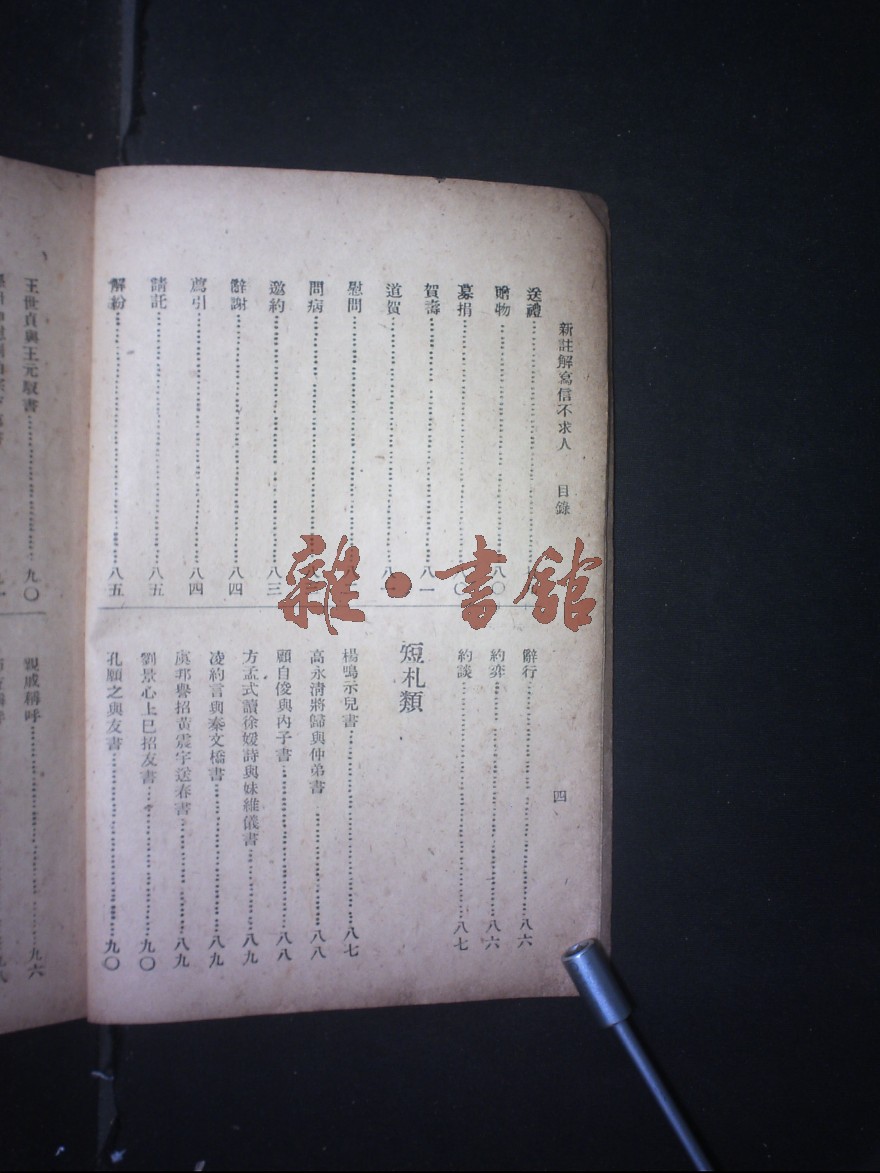 新註解寫信不求人 目錄 四
送禮
贈物 八〇
募捐 八〇
賀壽 八一
道賀 八一
慰問
問病
邀約 八三
辭謝 八四
薦引 八四
請託 八五
解紛 八五
辭行 八六
約弈 八六
約談 八七
短札類
楊鳴示兒書 八七
高永清將歸與仲弟書 八八
顧自俊與內子書 八八
方孟式讀徐媛詩與妹維儀書 八九
凌約言與秦文橋書 八九
虞邦譽招黃震宇送春書 八九
劉景心上巳招友書 九〇
孔願之與友書 九〇
王世貞與王元馭書 九〇
親戚稱呼 九六
雜·書館